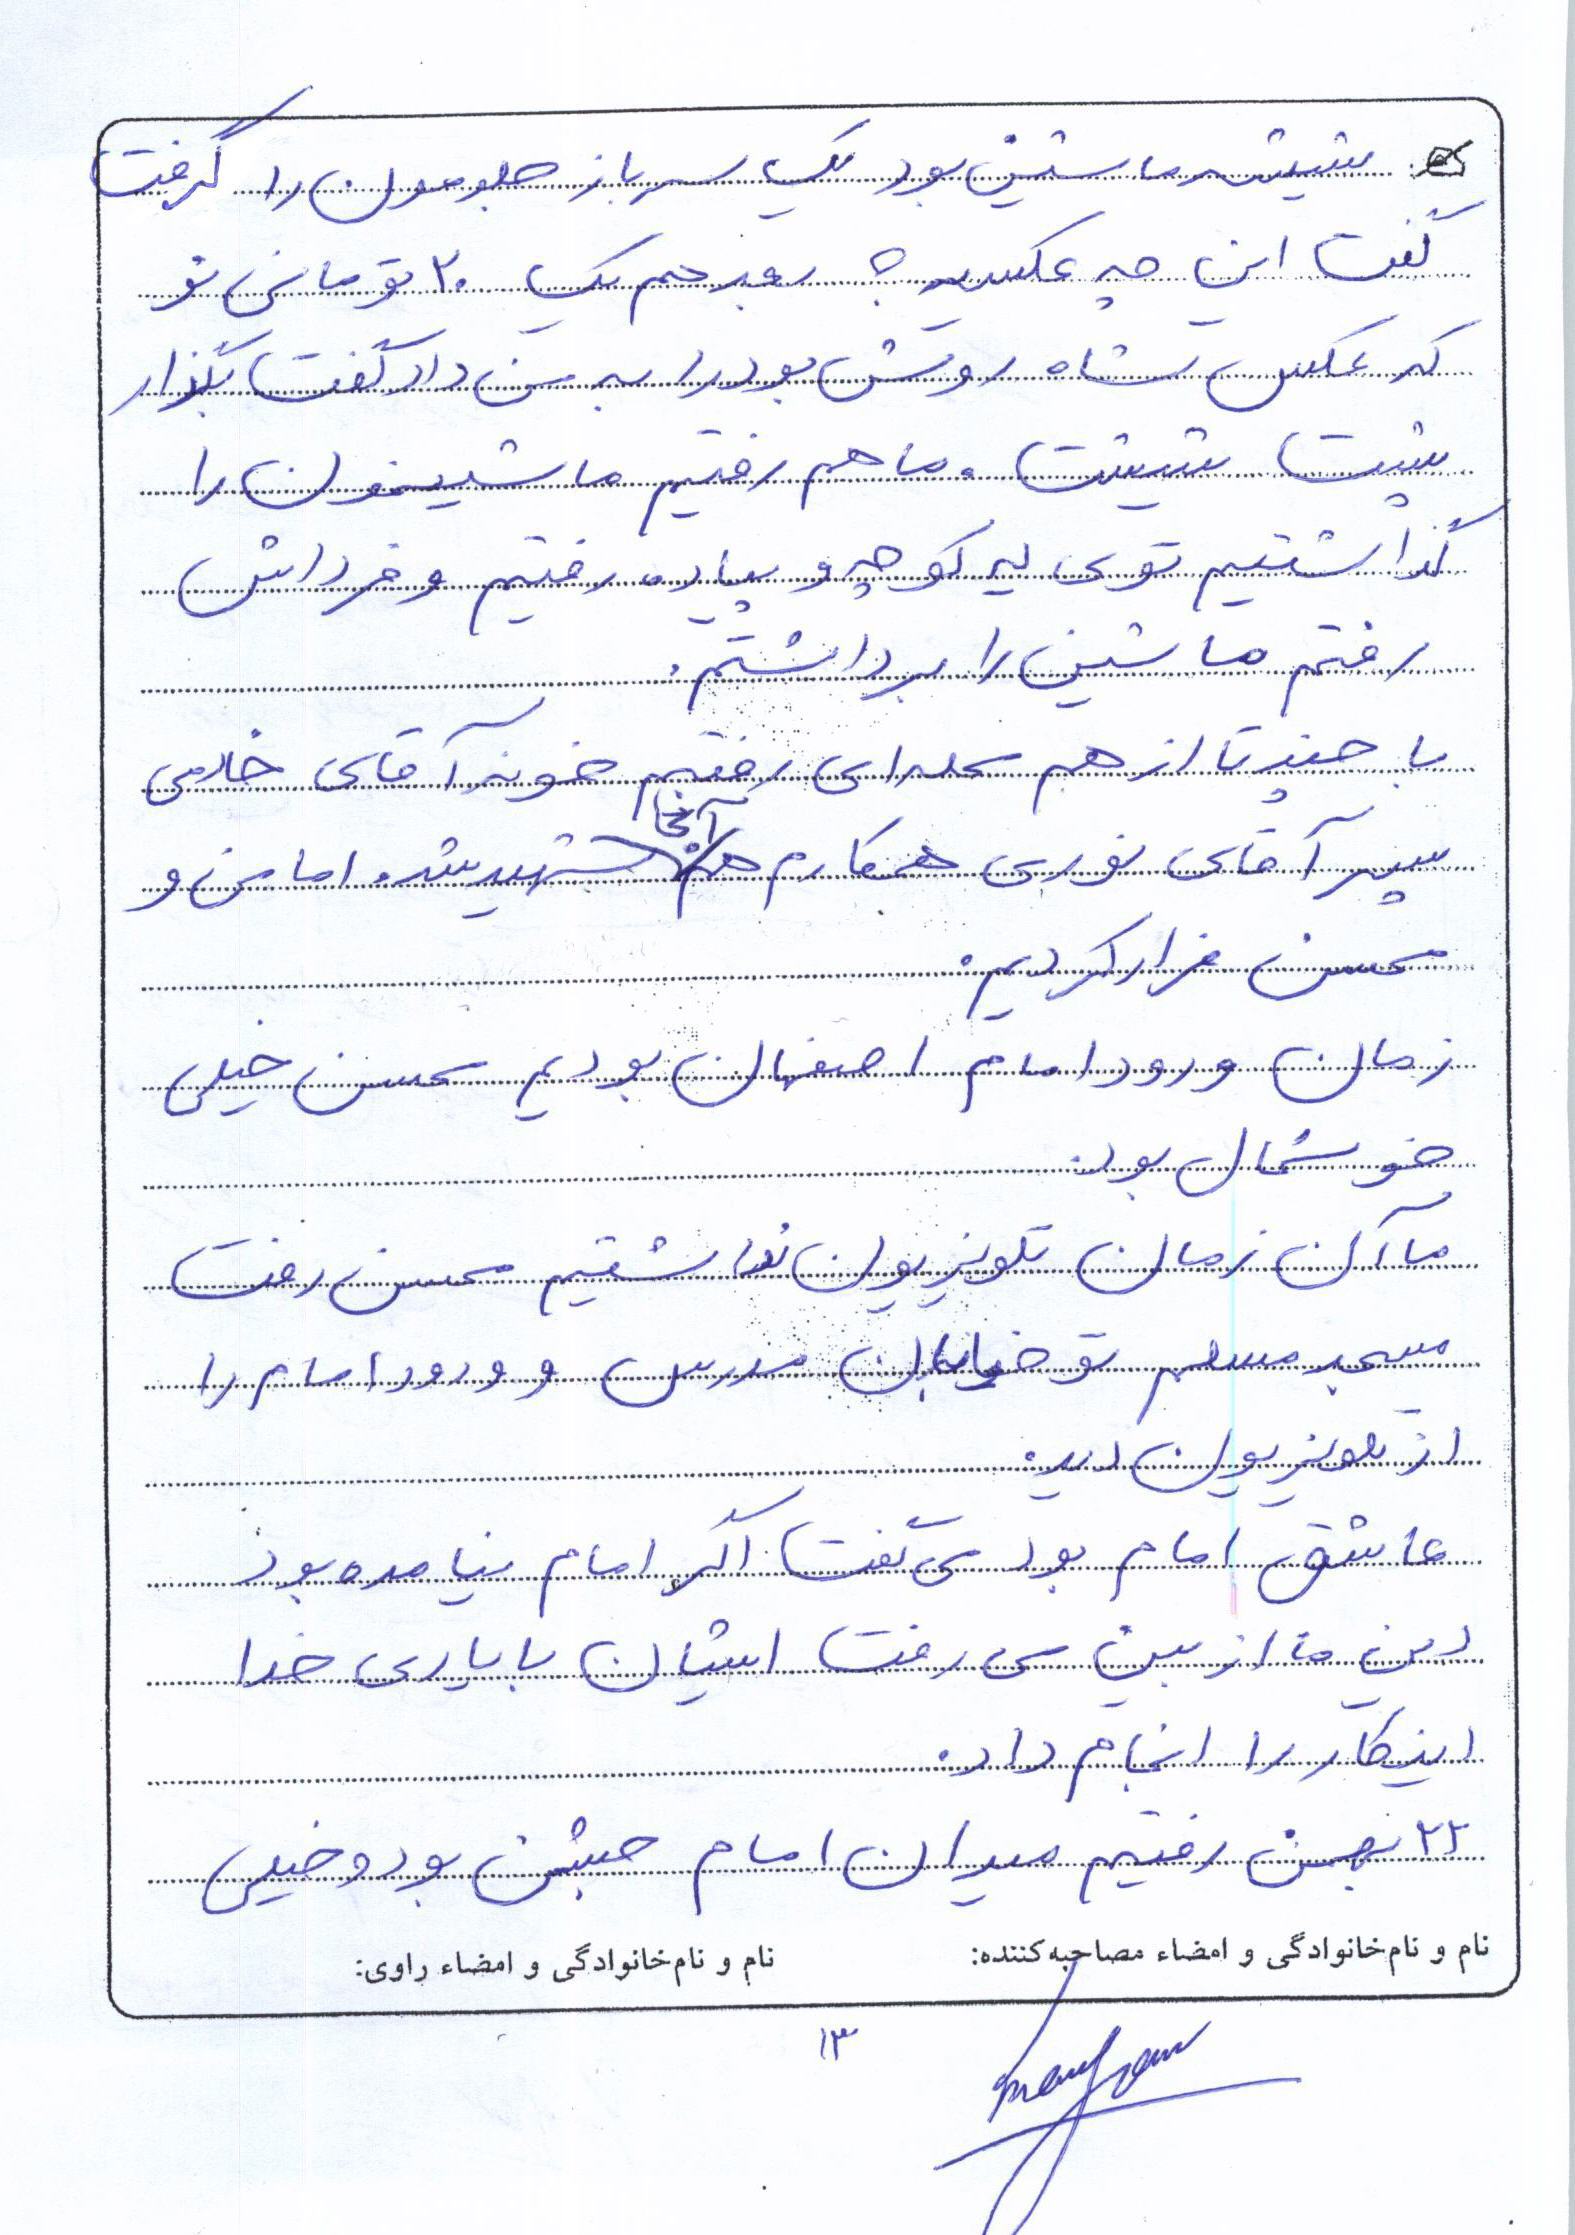 شیشه ماشین بود یک سرباز جلومون را گرفت
گفت این چه عکسیه؟ بعد هم یک ۲۰ تومانی نو
که عکس شاه روش بود را به من داد گفت بگذار
پشت شیشت. ما هم رفتیم ماشینمون را
گذاشتیم توی یه کوچه و پیاده رفتیم و فرداش
رفتم ماشین را برداشتم.
با چند تا از هم محله‌ای رفتیم خونه آقای خادمی
پسر آقای نوری همکارم هم آنجا شهید شد. اما من و
محسن فرار کردیم.
زمان ورود امام اصفهان بودیم محسن خیلی
خوشحال بود.
ما آن زمان تلویزیون نداشتیم محسن رفت
مسجد مسلم تو خیابان مدرس و ورود امام را
از تلویزیون دید.
عاشق امام بود می گفت اگر امام نیامده بود
دین ما از بین می رفت ایشان با یاری خدا
اینکار را انجام داد.
۲۲ بهمن رفتیم میدان امام جشن بود و خیلی
نام و نام‌خانوادگی و امضاء مصاحبه‌کننده: نام و نام‌خانوادگی و امضاء راوی:
۱۳